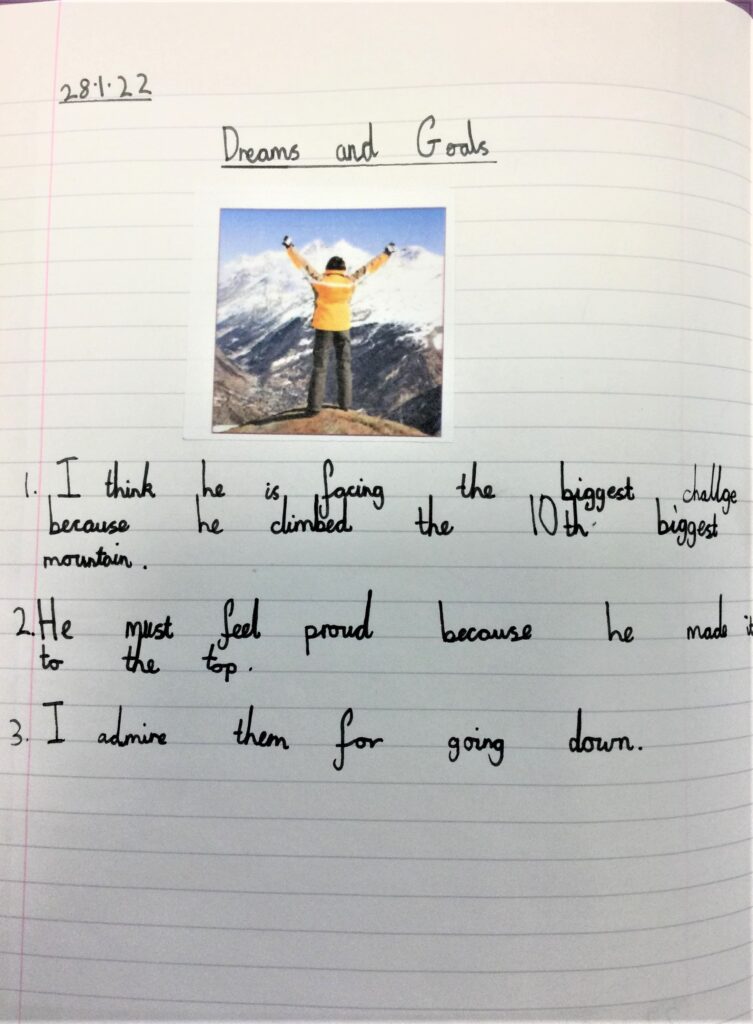 28.1.22
Dreams and Goals
1. I think he is facing the biggest challge
because he climbed the 10th biggest
mountain.
2. He must feel proud because he made it
to the top.
3. I admire them for going down.